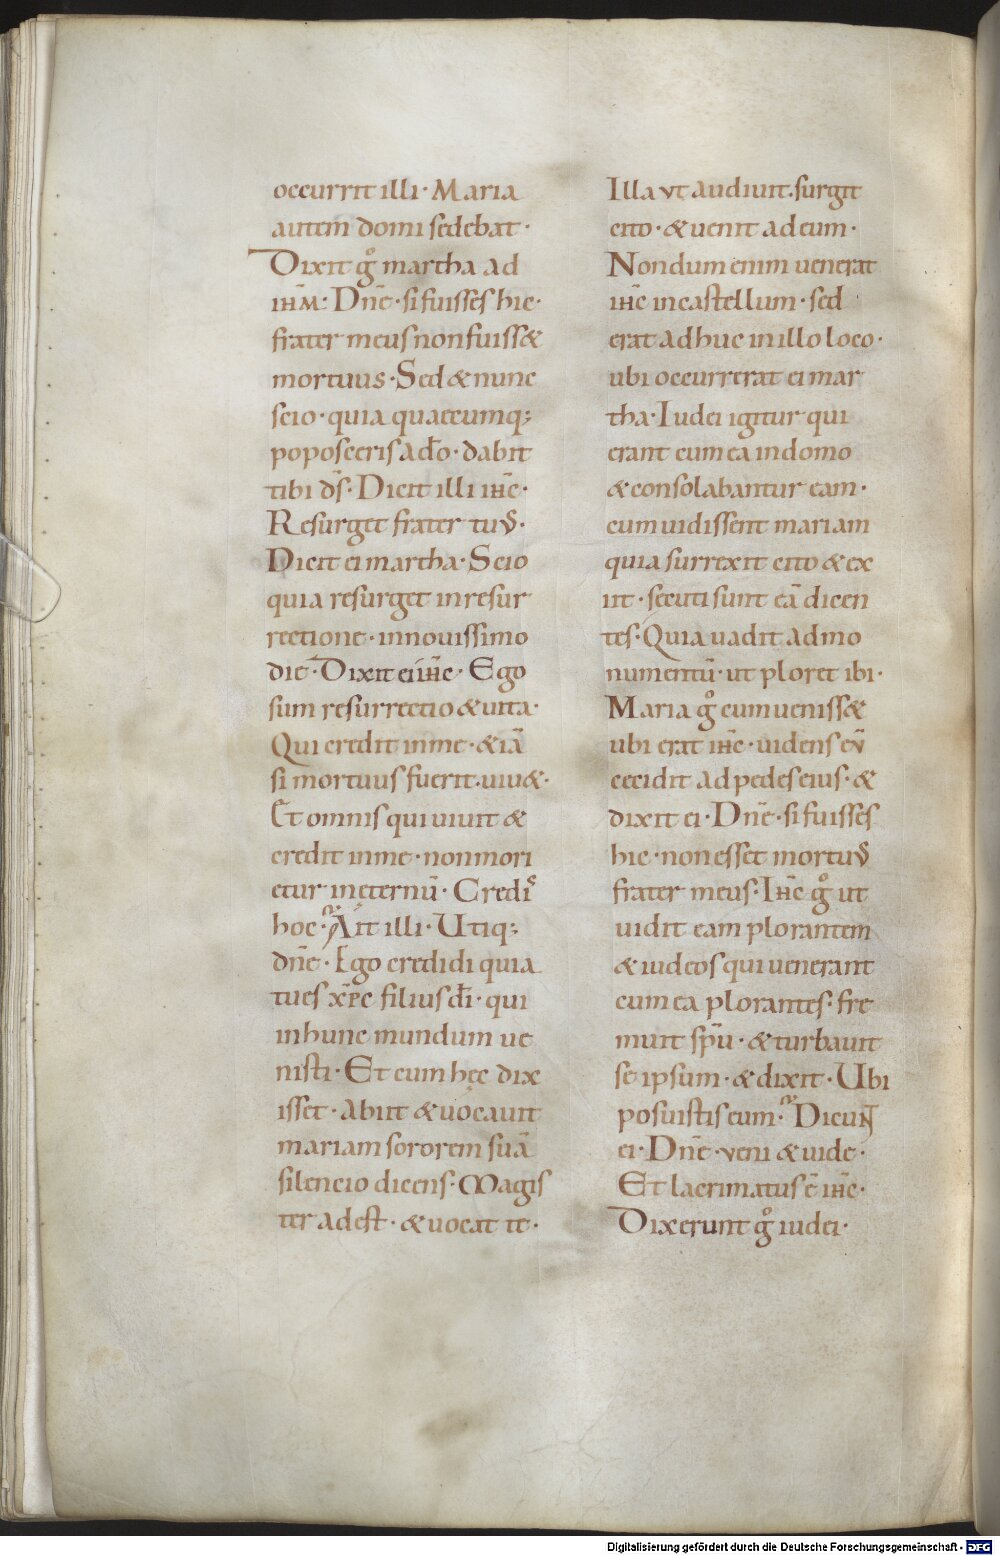 occurrit illi · Maria
autem domi sedebat ·
Dixit gͦ martha ad
ihm̄ : Dn̄e · si fuisses hic ·
frater meus non fuiss&
mortuus · Sed & nunc
scio · quia quaecumq;
poposceris a do̅ · dabit
tibi ds̄ · Dicit illi ihc̄ ·
Resurget frater tuꝰ ·
Dicit ei martha · Scio
quia resurget in resur
rectione · in novissimo
die · Dixit ei ihc̄ · Ego
sum resurrectio & vita ·
Qui credit in me · & iā
si mortuus fuerit · viv& ·
Et omnis qui vivit &
credit in me · non mori
etur in ęternū · Credis
hoc · Ait illi · Utiq;
dn̄e · Ego credidi quia
tu es xp̄c filius di̅ · qui
in hunc mundum ve
nisti · Et cum hęc dix
isset · abiit & vocavit
mariam sororem suā
silencio dicens · Magis
ter adest · & vocat te ·
Illa vt audivit · surgit
cito · & venit ad eum ·
Nondum enim venerat
ihc̄ in castellum · sed
erat adhuc in illo loco ·
ubi occurrerat ei mar
tha · Iudei igitur qui
erant cum ea in domo
& consolabantur eam ·
cum vidissent mariam
quia surrexit cito & ex
iit · secuti sunt eā dicen
tes · Quia vadit ad mo
numentū · ut ploret ibi ·
Maria gͦ cum veniss&
ubi erat ihc̄ · videns eū
cecidit ad pedes eius · &
dixit ei · Dn̄e · si fuisses
hic · non esset mortuꝰ
frater meus · Ihc̄ gͦ ut
vidit eam plorantem
& iudeos qui venerant
cum ea plorantes · fre
muit sp̄u · & turbavit
se ipsum · & dixit · Ubi
posuistis eum · Dicunt
ei · Dn̄e · veni & vide ·
Et lacrimatus ē ihc̄ ·
Dixerunt gͦ iudei ·
Digitalisierung gefördert durch die Deutsche Forschungsgemeinschaft · DFG